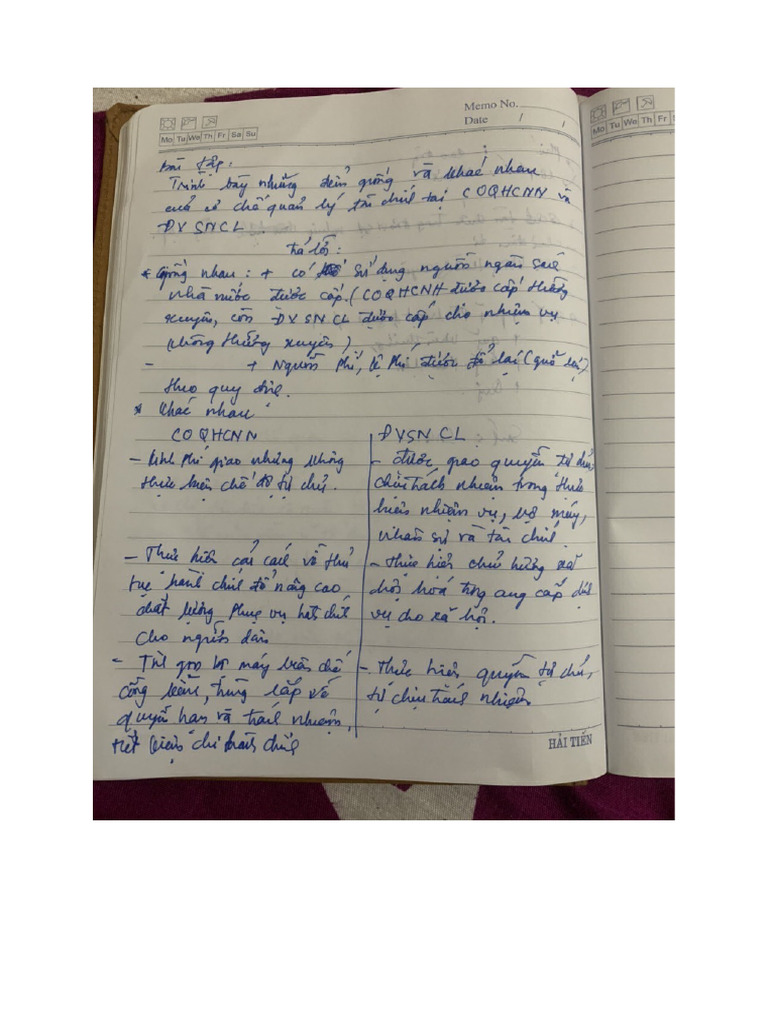 Memo No.
Date / /
Mo Tu We Th Fr Sa Su
Mo Tu We Th Fr S
Bài tập:
Trình bày những điểm giống và khác nhau
của cơ chế quản lý tài chính tại COQHCNN và
ĐVSNCL.
Trả lời:
* Giống nhau: + có sử dụng nguồn ngân sách
nhà nước được cấp. (COQHCNN được cấp thường
xuyên, còn ĐVSNCL được cấp cho nhiệm vụ
không thường xuyên)
- + Nguồn Phí, lệ Phí được để lại
theo quy định.
* Khác nhau
COQHCNN
- Kinh phí giao nhưng không
thực hiện chế độ tự chủ.
- Thực hiện cải cách về thủ
tục hành chính để nâng cao
chất lượng phục vụ hành chính
cho người dân
- Tinh gọn bộ máy biên chế
cồng kềnh, trùng lắp về
quyền hạn và trách nhiệm,
tiết kiệm chi hành chính
ĐVSNCL
- được giao quyền tự chủ,
chịu trách nhiệm trong thực
hiện nhiệm vụ, bộ máy,
nhân sự và tài chính
- thực hiện chủ trương xã
hội hoá trong cung cấp dịch
vụ cho xã hội.
- thực hiện quyền tự chủ,
tự chịu trách nhiệm
HẢI TIẾN